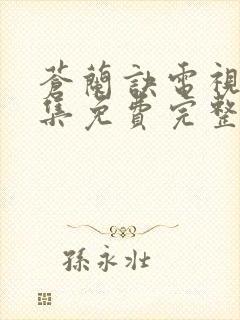 蒼蘭訣電視
集免費完整
孫永壯